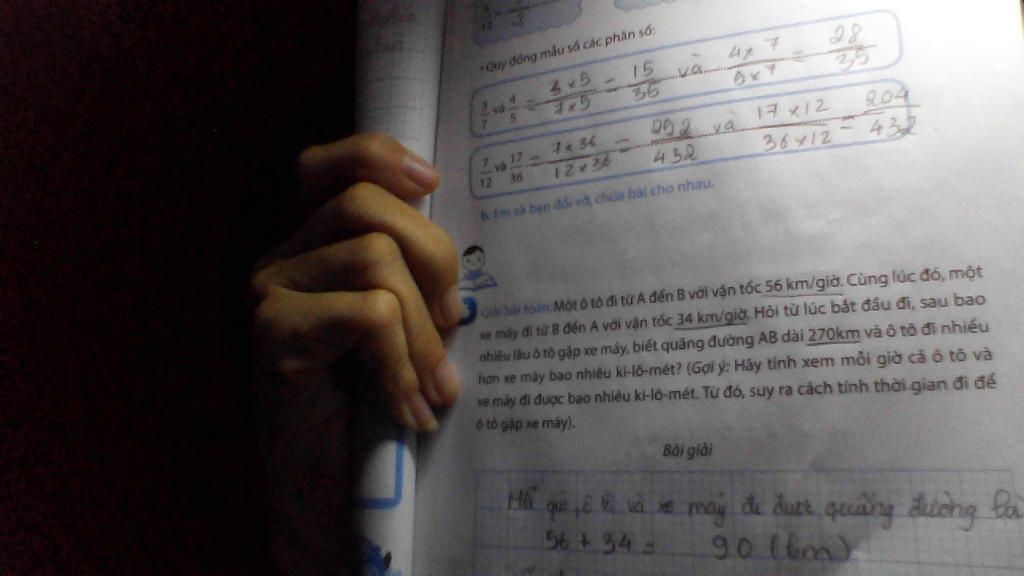 • Quy đồng mẫu số các phân số:
3/7 và 4/5 = 3 x 5 / 7 x 5 = 15/35 và 4 x 7 / 5 x 7 = 28/35
7/12 và 17/36 = 7 x 36 / 12 x 36 = 252/432 và 17 x 12 / 36 x 12 = 204/432
b. Em và bạn đổi vở, chữa bài cho nhau.
Giải bài toán: Một ô tô đi từ A đến B với vận tốc 56 km/giờ. Cùng lúc đó, một
xe máy đi từ B đến A với vận tốc 34 km/giờ. Hỏi từ lúc bắt đầu đi, sau bao
nhiêu lâu ô tô gặp xe máy, biết quãng đường AB dài 270km và ô tô đi nhiều
hơn xe máy bao nhiêu ki-lô-mét? (Gợi ý: Hãy tính xem mỗi giờ cả ô tô và
xe máy đi được bao nhiêu ki-lô-mét. Từ đó, suy ra cách tính thời gian đi để
ô tô gặp xe máy).
Bài giải
Mỗi giờ, ô tô và xe máy đi được quãng đường là
56 + 34 = 90 (km)